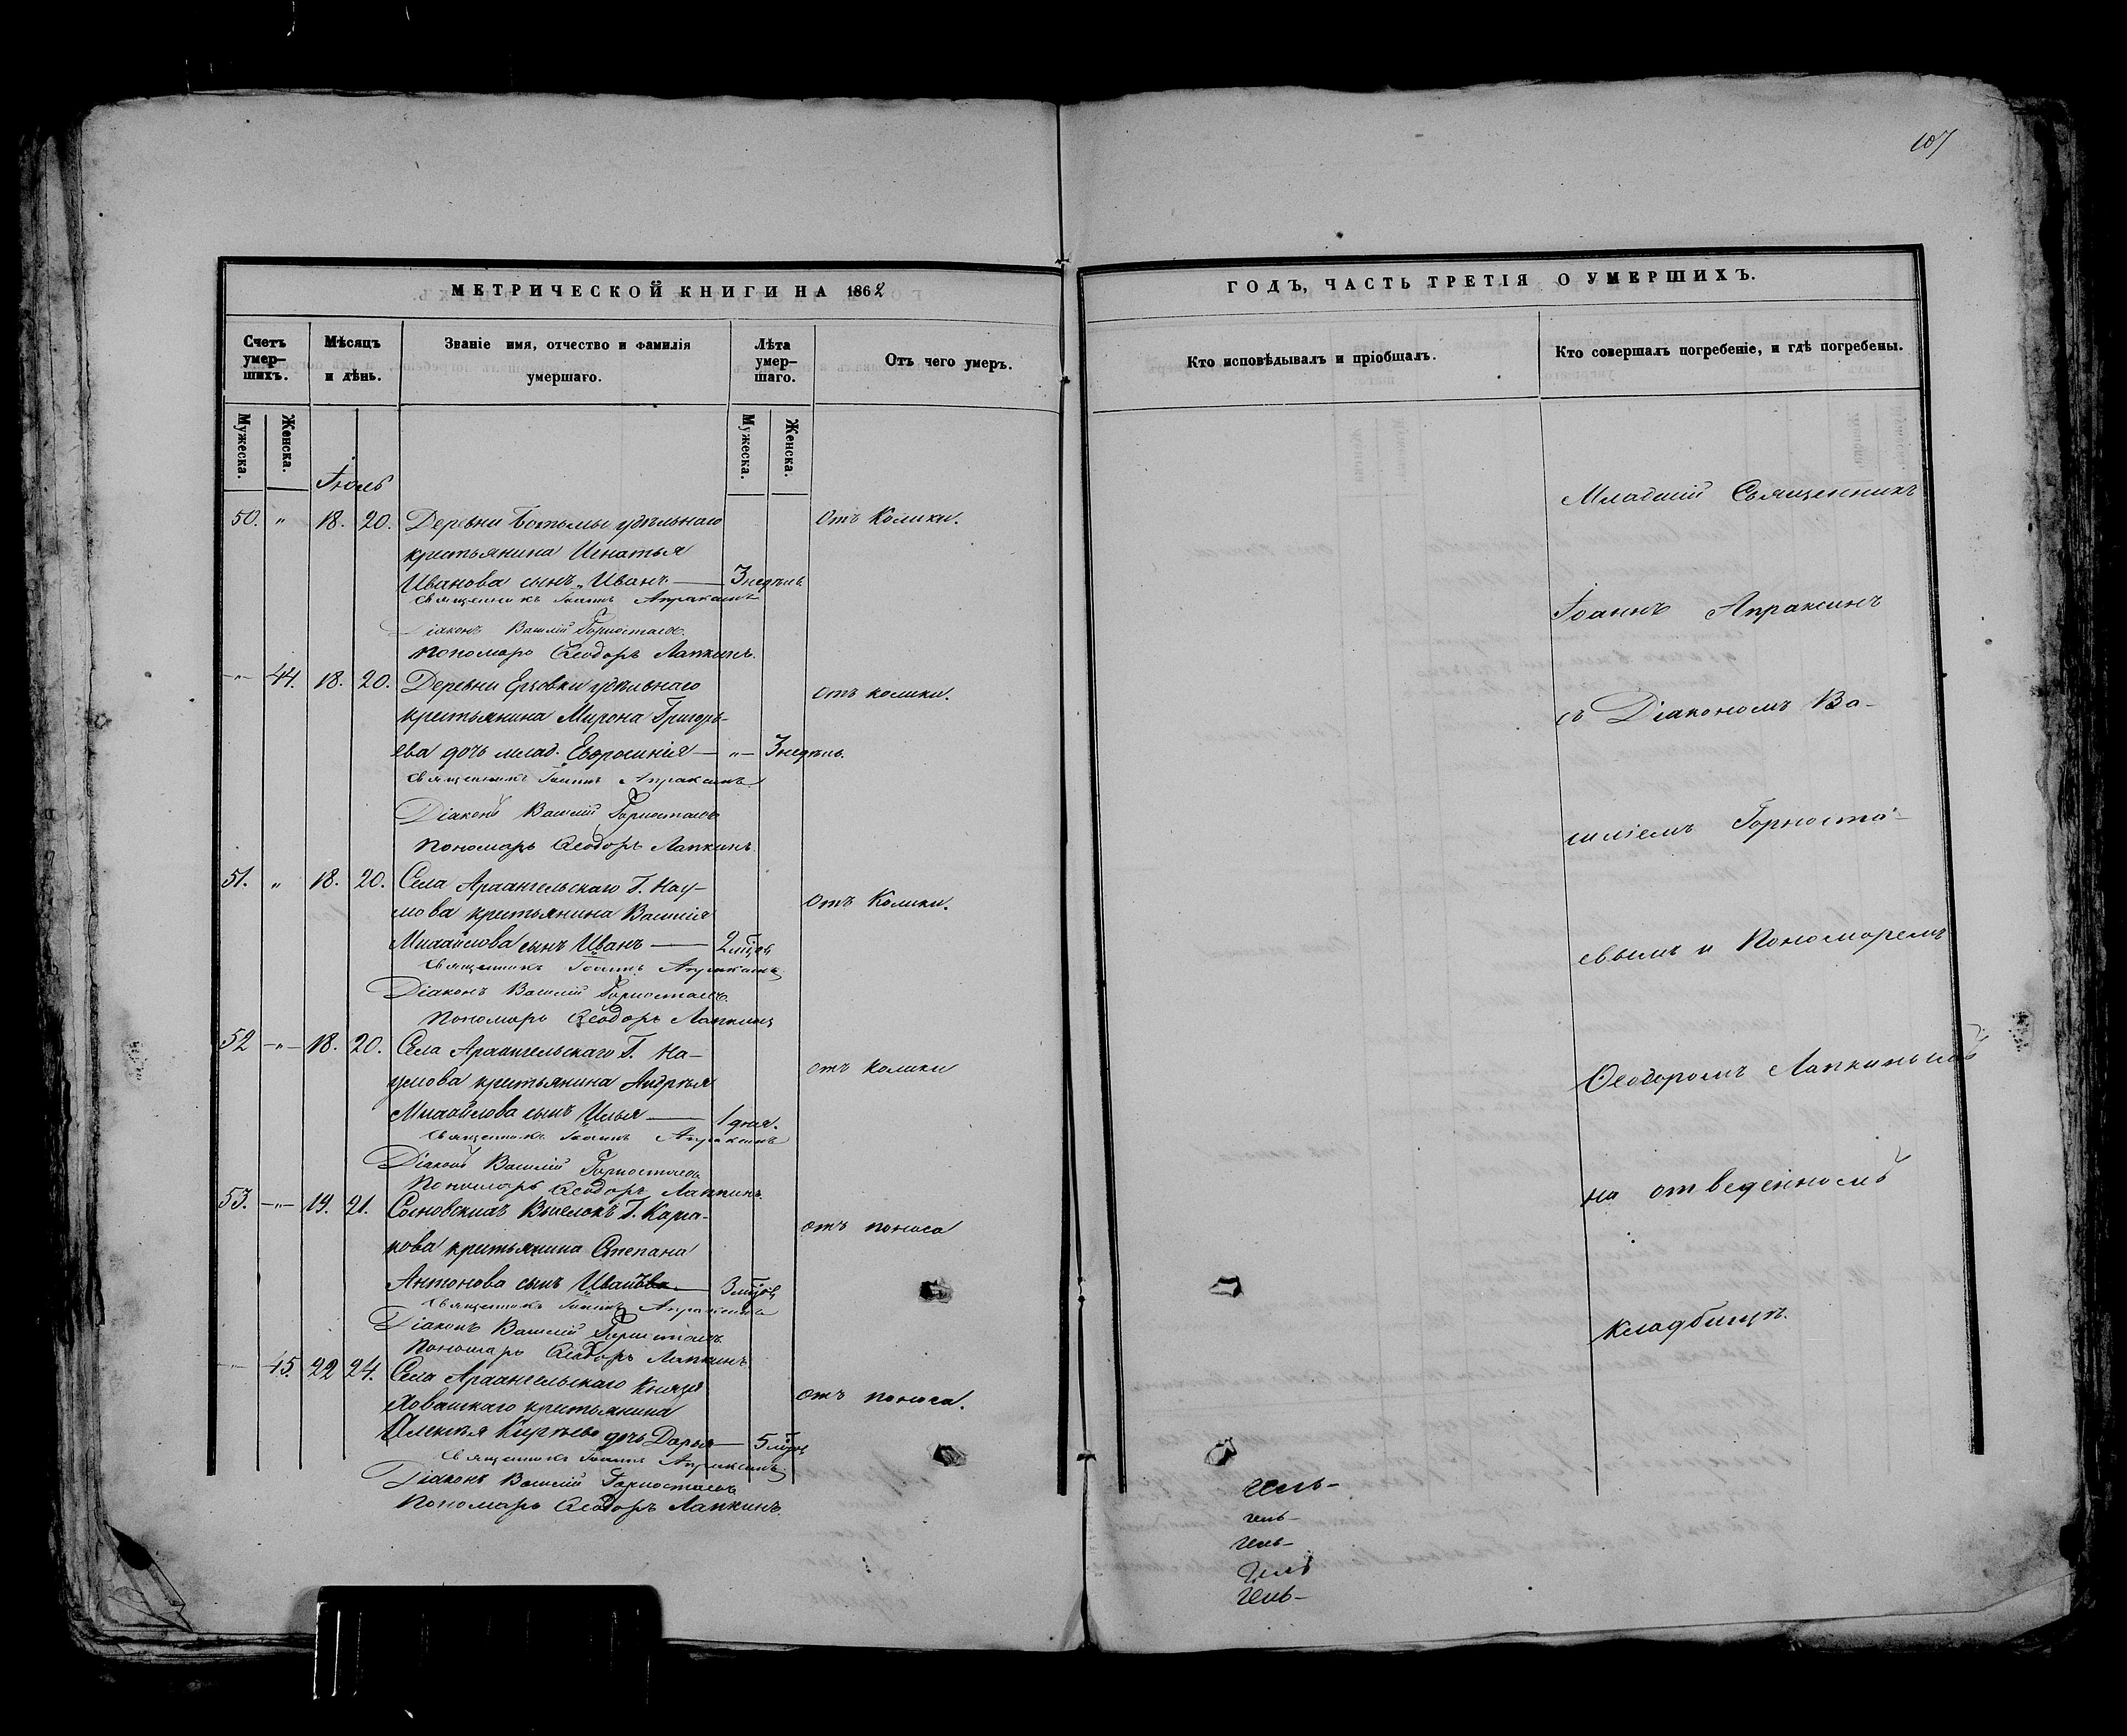 107
МЕТРИЧЕСКОЙ КНИГИ НА 1862
Счетъ умер-шихъ.
Мѣсяцъ и дѣнь.
Званіе имя, отчество и фамилія умершаго.
Лѣта умер-шаго.
Отъ чего умеръ.
Мужеска.
Женска.
Мужеска.
Женска.
Іюль
50. " 18. 20. Деревни Ботьмы удѣльнаго Отъ Колики.
крестьянина Игнатья
Иванова сынъ Иванъ — 3 недѣль
Священникъ Іоаннъ Апраксинъ
Діаконъ Василій Горностаевъ.
Пономарь Ѳеодоръ Лапкинъ.
-"- 44. 18. 20. Деревни Ерзовки удѣльнаго отъ колики.
крестьянина Мирона Григорь-
ева дочь млад. Евфросинія — "— 3 недѣль.
Священникъ Іоаннъ Апраксинъ
Діаконъ Василій Горностаевъ
Пономарь Ѳеодоръ Лапкинъ.
51. " 18. 20. Села Архангельскаго Г. Нау- Отъ Колики.
мова крестьянина Василія
Михайлова сынъ Иванъ — 2 мѣсяц
Священникъ Іоаннъ Апраксинъ
Діаконъ Василій Горностаевъ.
Пономарь Ѳеодоръ Лапкинъ
52 -"- 18. 20. Села Архангельскаго Г. На- отъ колики
умова крестьянина Андрѣя
Михайлова сынъ Илья — 1 дня.
Священникъ Іоаннъ Апраксинъ
Діаконъ Василій Горностаевъ
Пономарь Ѳеодоръ Лапкинъ.
53. -"- 19. 21. Сосновскихъ Выселокъ Г. отъ поноса
крестьянина Степана
Антонова сынъ Иванъ — 3 мѣсяц
Священникъ Іоаннъ Апраксинъ
Діаконъ Василій Горностаевъ.
Пономарь Ѳеодоръ Лапкинъ
-"- 45. 22 24. Села Архангельскаго Князя отъ поноса.
Хованскаго крестьянина
Алексѣя дочь Дарья — 5 мѣсяц
Священникъ Іоаннъ Апраксинъ
Діаконъ Василій Горностаевъ
Пономарь Ѳеодоръ Лапкинъ.
ГОДЪ, ЧАСТЬ ТРЕТІЯ О УМЕРШИХЪ.
Кто исповѣдывалъ и пріобщалъ.
Кто совершалъ погребеніе, и гдѣ погребены.
Младшій Священникъ
Іоаннъ Апраксинъ
съ Діакономъ Ва-
силіемъ Горноста-
евымъ и Пономаремъ
Ѳеодоромъ Лапкинымъ
на отведенномъ
кладбищѣ.